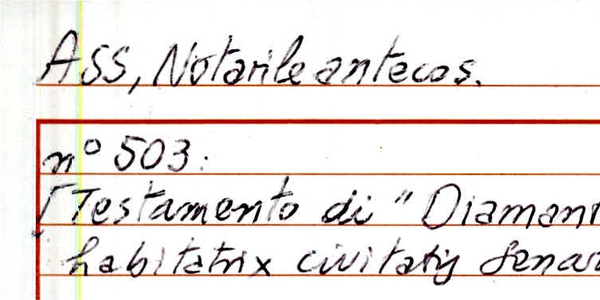 Ass, Notarile antecos.
n° 503:
[Testamento di "Diaman
habitatrix civitatis Senar